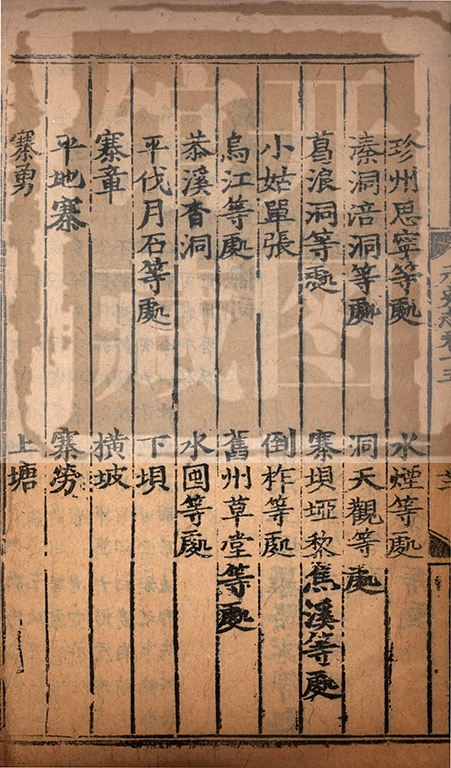 珍州思寧等處　水煙等處
溱洞涪洞等處　洞天觀等處
葛浪洞等處　寨垻埡黎焦溪等處
小姑單張　倒柞等處
烏江等處　舊州草堂等處
恭溪杳洞　水囤等處
平伐月石等處　下垻
寨章　橫坡
平地寨　寨勞
寨勇　上塘